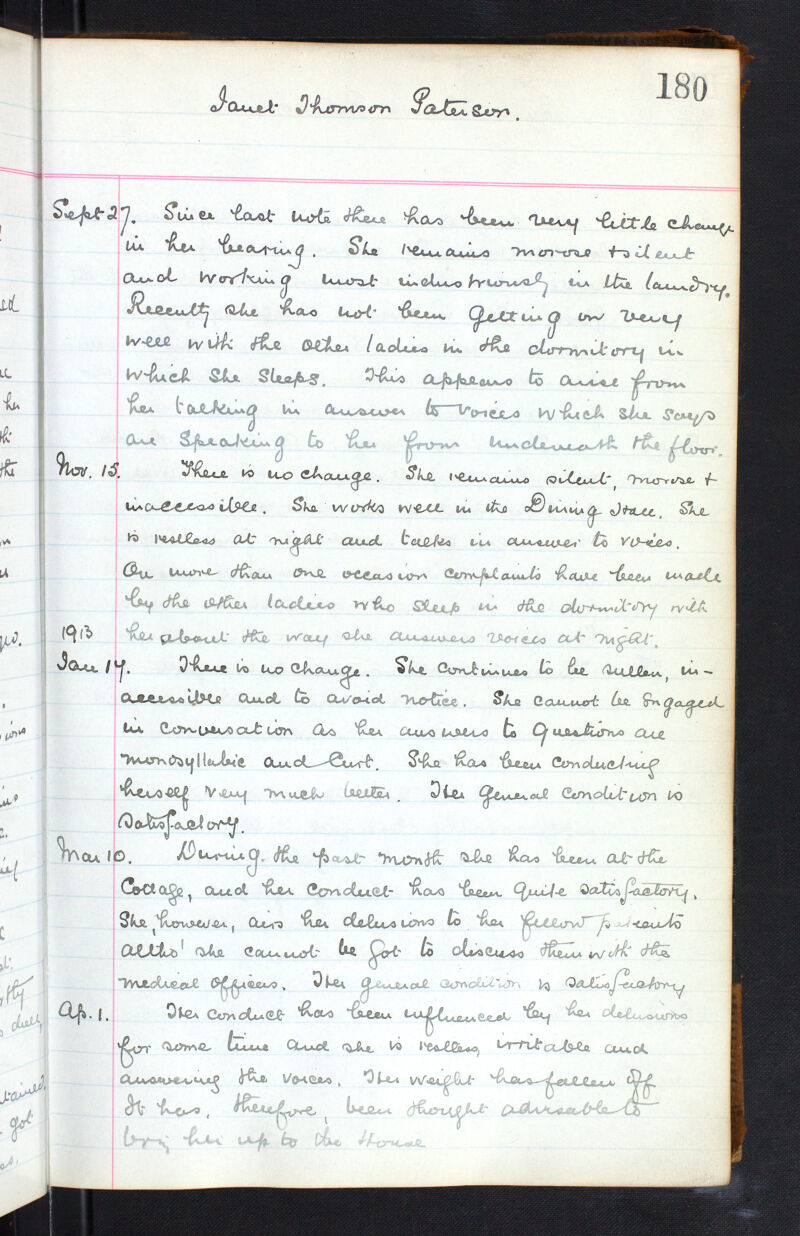 180
Janet Thomson Paterson.
Sept 27. Since last note there has been very little change
in her bearing. She remains morose & silent
and working most industriously in the laundry.
Recently she has not been getting on very
well with the other ladies in the dormitory in
which she sleeps. This appears to arise from
her talking in answer to voices which she says
are speaking to her from underneath the floor.
Nov. 15. There is no change. She remains silent, morose &
inaccessible. She works well in the Dining Hall. She
is restless at night and talks in answer to voices.
On more than one occasion complaints have been made
by the other ladies who sleep in the dormitory with
1913 her about the way she answers voices at night.
Jan 14. There is no change. She continues to be sullen, in-
accessible and to avoid notice. She cannot be engaged
in conversation as her answers to questions are
monosyllabic and curt. She has been conducting
herself very much better. Her general condition is
satisfactory.
Mar 10. During the past month she has been at the
Cottage, and her conduct has been quite satisfactory.
She, however, airs her delusions to her fellow patients
altho' she cannot be got to discuss them with the
medical officers. Her general condition is satisfactory
Ap. 1. Her conduct has been influenced by her delusions
for some time and she is restless, irritable and
answering the voices. Her weight has fallen off
It has, therefore, been thought advisable to
bring her up to the House